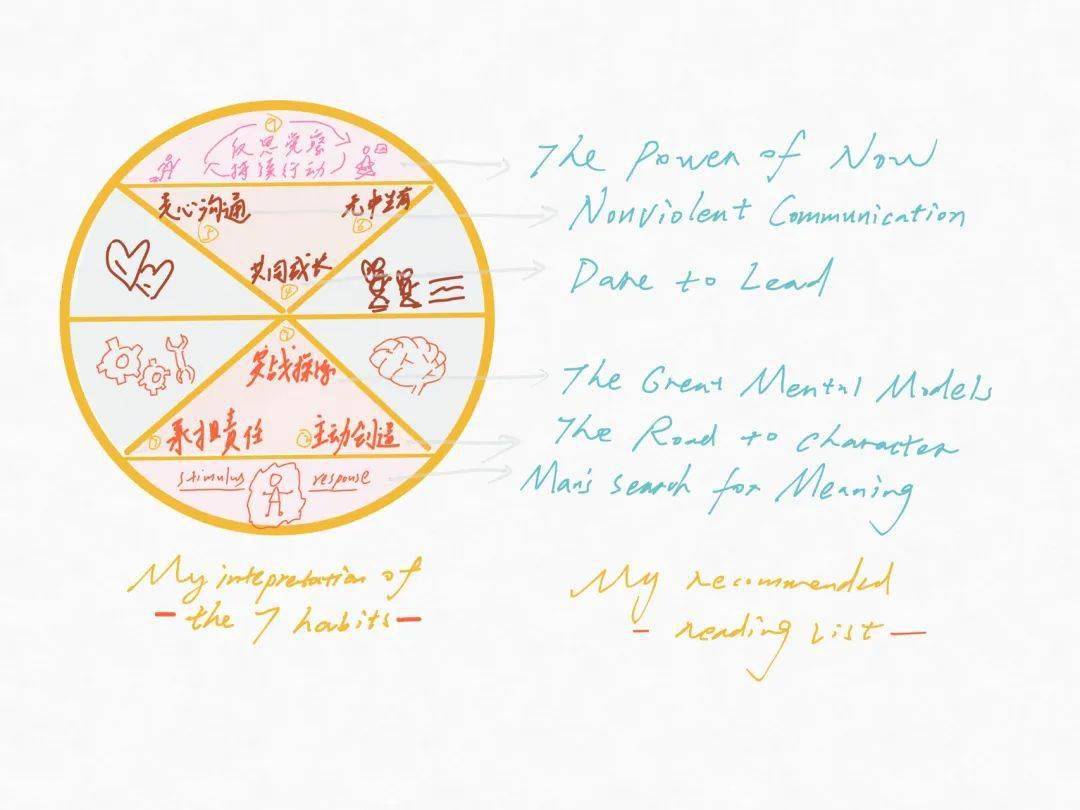 ⑦
反思觉察
持续行动
走心沟通
⑤
无中生有
⑥
共同成长
④
③
实战操练
① 承担责任
② 主动创造
stimulus
response
The Power of Now
Nonviolent Communication
Dare to Lead
The Great Mental Models
The Road to character
Man's search for Meaning
My intepretation of
- the 7 habits -
My recommended
- reading list -